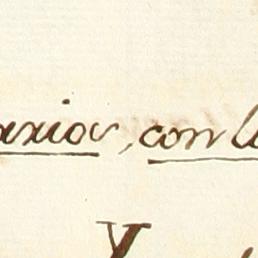 arios, con l
Y